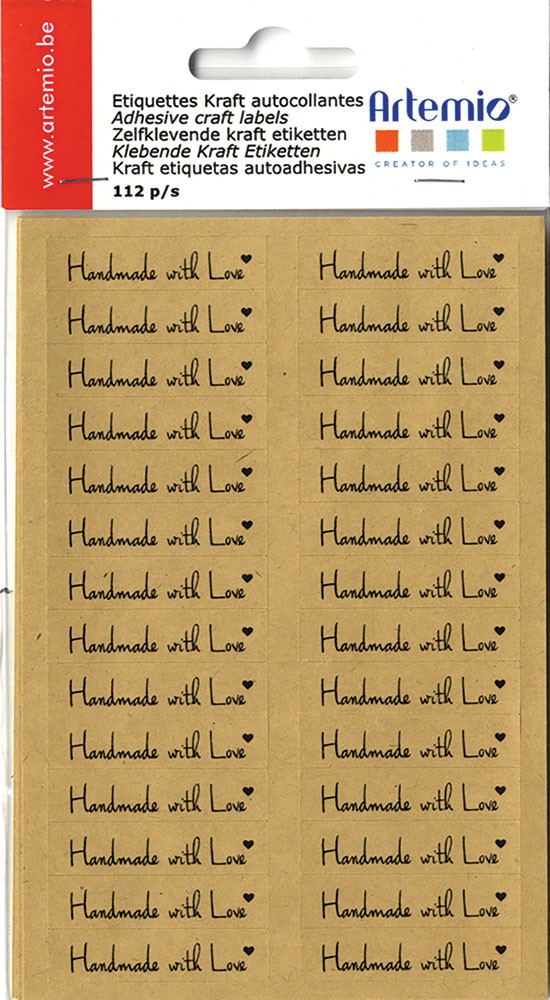 www.artemio.be
Etiquettes Kraft autocollantes
Adhesive craft labels
Zelfklevende kraft etiketten
Klebende Kraft Etiketten
Kraft etiquetas autoadhesivas
112 p/s
Artemio®
CREATOR OF IDEAS
Handmade with Love♥ Handmade with Love♥
Handmade with Love♥ Handmade with Love♥
Handmade with Love♥ Handmade with Love♥
Handmade with Love♥ Handmade with Love♥
Handmade with Love♥ Handmade with Love♥
Handmade with Love♥ Handmade with Love♥
Handmade with Love♥ Handmade with Love♥
Handmade with Love♥ Handmade with Love♥
Handmade with Love♥ Handmade with Love♥
Handmade with Love♥ Handmade with Love♥
Handmade with Love♥ Handmade with Love♥
Handmade with Love♥ Handmade with Love♥
Handmade with Love♥ Handmade with Love♥
Handmade with Love♥ Handmade with Love♥